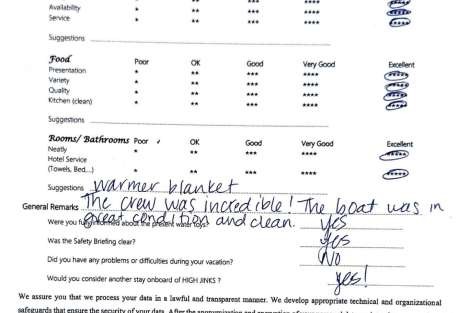 Availability * ** *** **** *****
Service * ** *** **** *****
Suggestions
Food Poor OK Good Very Good Excellent
Presentation * ** *** **** *****
Variety * ** *** **** *****
Quality * ** *** **** *****
Kitchen (clean) * ** *** **** *****
Suggestions
Rooms/ Bathrooms Poor OK Good Very Good Excellent
Neatly * ** *** **** *****
Hotel Service
(Towels, Bed,...) * ** *** **** *****
Suggestions warmer blanket
General Remarks The crew was incredible! The boat was in
great condition and clean.
Were you fully informed about the present water toys? yes
Was the Safety Briefing clear? yes
Did you have any problems or difficulties during your vacation? No
Would you consider another stay onboard of HIGH JINKS ? yes!
We assure you that we process your data in a lawful and transparent manner. We develop appropriate technical and organizational
safeguards that ensure the security of your data. After the